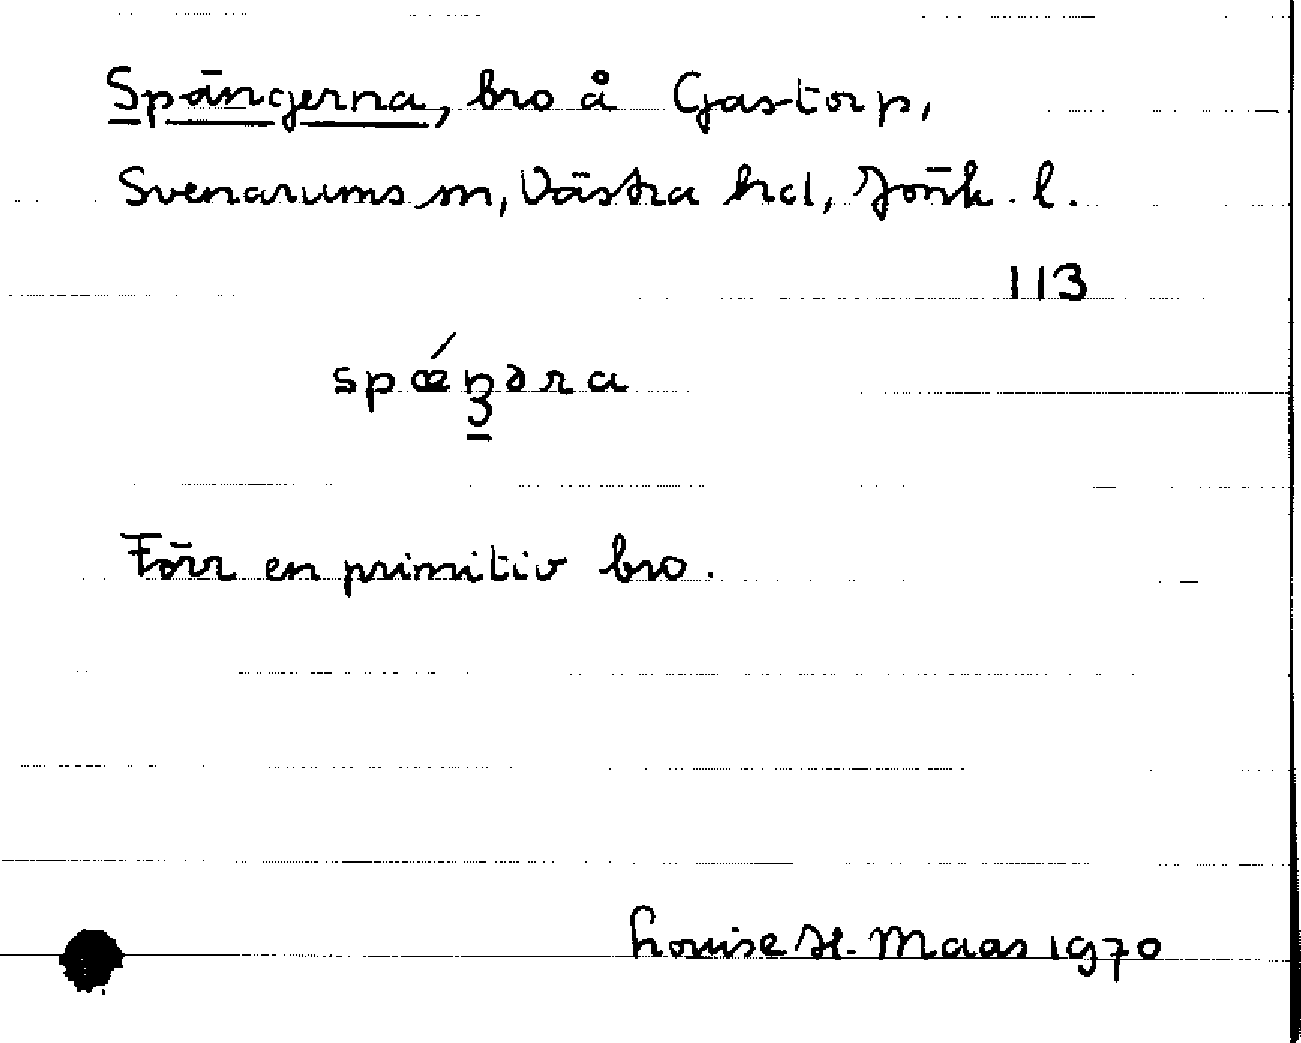 Spängerna, bro å Gastorp,
Svenarums sn, Västra hd, Jönk. l.
113
spǽŋ̱ədra
Förr en primitiv bro.
Louise H. Maas 1970